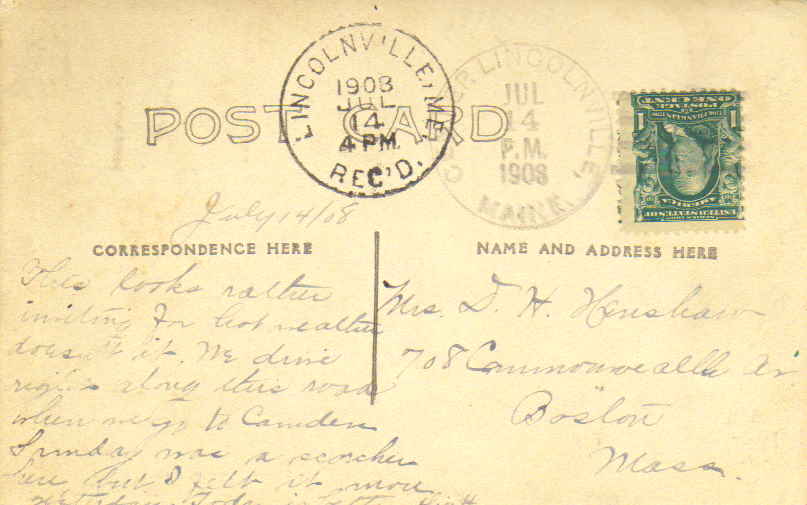 POST CARD
LINCOLNVILLE, ME.
1908
JUL
14
4 PM
REC'D.
CENTER LINCOLNVILLE,
JUL
14
P.M.
1908
MAINE.
ONE CENT
1
1
UNITED STATES OF
AMERICA
July 14/08
CORRESPONDENCE HERE
This looks rather
inviting for hot weather
doesn't it. We drive
right along this road
when we go to Camden
Sunday was a scorcher
here but I felt it more
yesterday. Today is better.
NAME AND ADDRESS HERE
Mrs. D. H. Henshaw
708 Commonwealth Av
Boston
Mass.